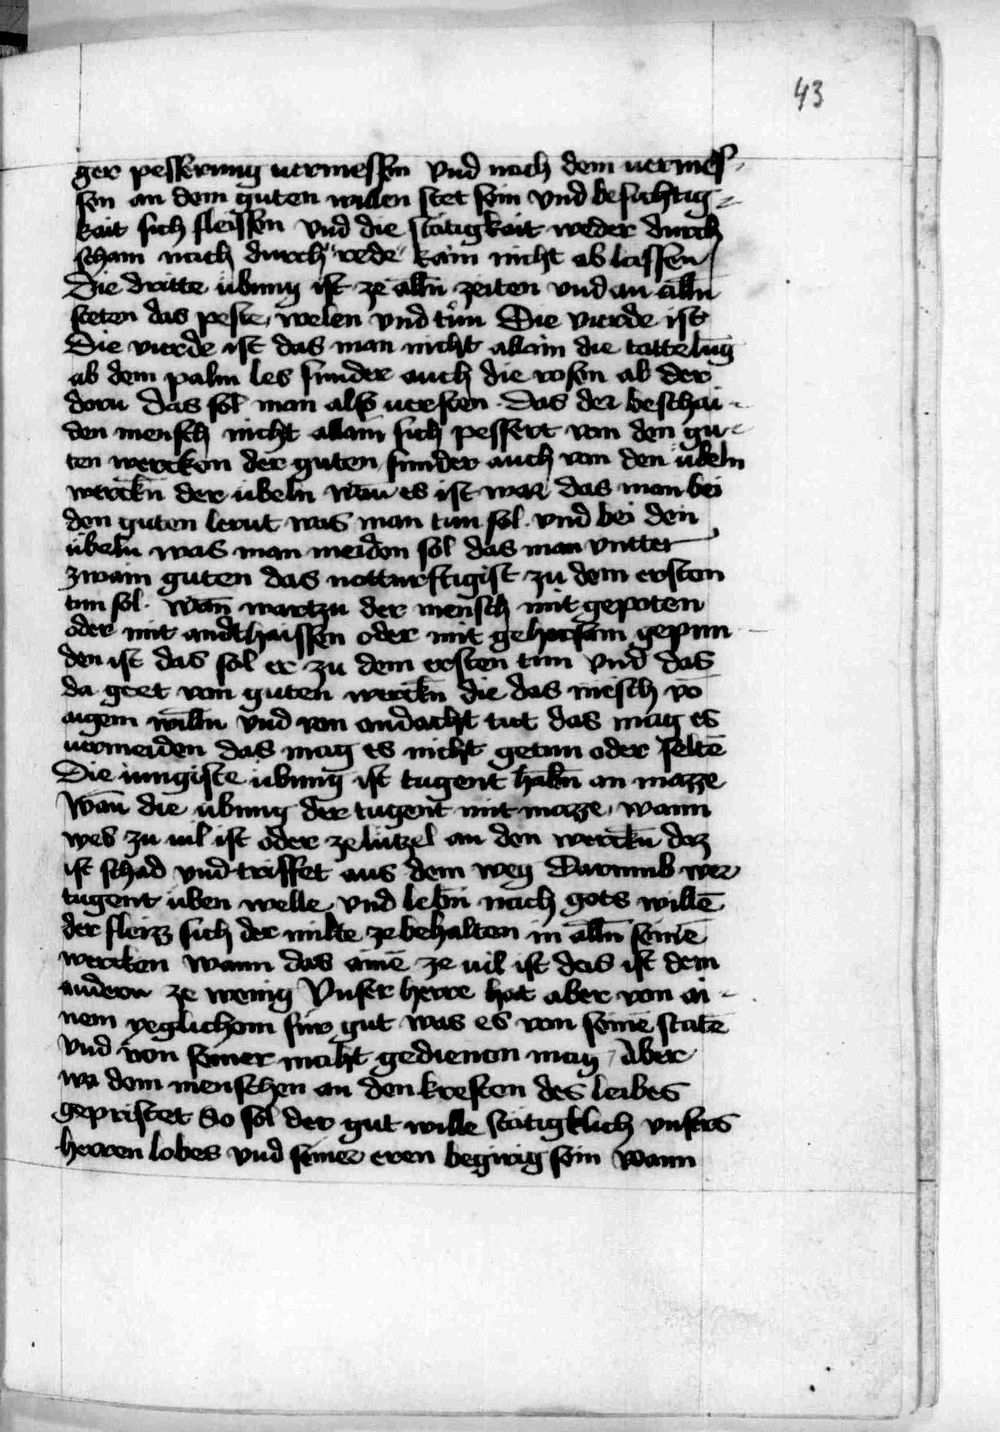 43
ger pesserung uermessen vnd nach dem uermes-
sen an dem guten willen stet sein vnd besichtig-
kait sich fleissen vnd die stätigkait weder durch
scham nach durch rede kain nicht ab lassen
Die dritte übung ist ze alln̄ zeiten vnd an alln̄
steten das peste welen vnd tun Die vierde ist
Die vierde ist das man nicht allain die tattelun̄g
ab dem palm les sunder auch die rosen ab der
dorn das sol man also uersten. Das der beschai-
den mensch nicht allain sich pessert von den gu-
ten wercken der guten sunder auch von den übeln
werckn̄ der übeln wan̄ es ist war das man bei
den guten lernt was man tun sol. vnd bei den
übeln was man meiden sol das man vntter
zwain guten das notturftigist zu dem ersten
tun sol. wan̄ wartzu der mensch mit gepoten
oder mit anthaissen oder mit gehorsam gepun-
den ist das sol er zu dem ersten tun vnd das
da geet von guten werckn̄ die das mēsch vō
aigem willn̄ vnd von andacht tut das mag es
uermeiden das mag es nicht getun oder seltē
Die iungiste übung ist tugent habn̄ an mazze
Wan̄ die übung der tugent mit mazze wann
wes zu uil ist oder ze lützel an den werckn̄ daz
ist schad vnd triffet aus dem weg Darumb wer
tugent üben welle vnd lebn̄ nach gots willē
der fleizz sich der milte ze behalten in alln̄ seinē
wercken wann das ainē ze uil ist das ist dem
andern ze wenig Vnser herre hat aber von ai-
nem yeglichem für gut was es von seinē statē
vnd von seiner macht gedienen mag Aber
wa dem menschen an den kreften des leibes
gepristet do sol der gut wille stätigklich vnsers
herren lobes vnd seiner eren begirig sein Wann